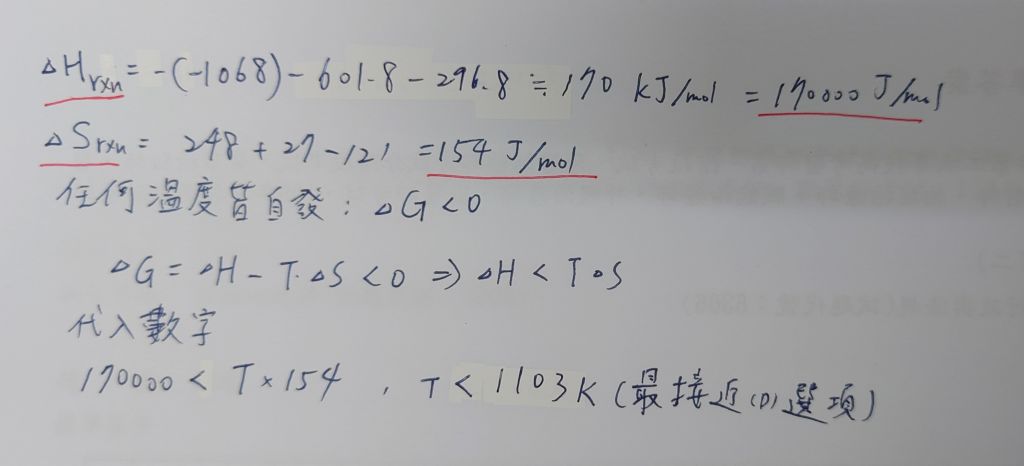 △Hrxn = -(-1068) - 601.8 - 296.8 ≒ 170 kJ/mol = 170000 J/mol
△Srxn = 248 + 27 - 121 = 154 J/mol
任何溫度皆自發：△G < 0
△G = △H - T·△S < 0 ⇒ △H < T△S
代入數字
170000 < T × 154 , T < 1103K (最接近(D)選項)